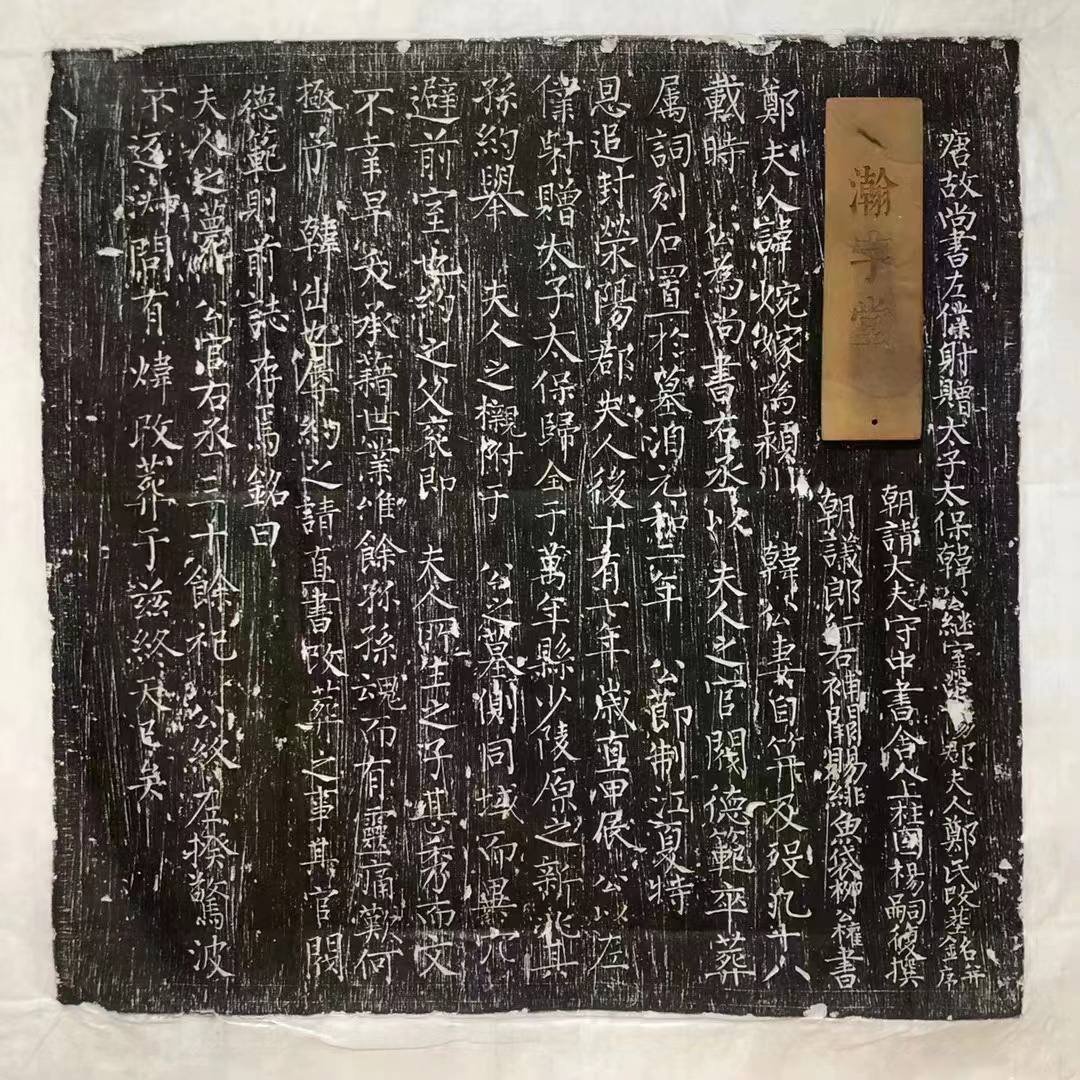 唐故尚書左僕射贈太子太保韓公繼室滎陽郡夫人鄭氏改墓銘并序
朝請大夫守中書舍人上柱國楊嗣復撰
朝議郎行右補闕賜緋魚袋柳公權書
鄭夫人諱婉嫁為潁川 韓公妻自笄及歿凡十八
載時 公為尚書右丞以夫人之官閥 德範卒葬
属詞刻石置於墓洎元和二年 公節制江夏特
恩追封榮陽郡夫人後十有七年歲直甲辰 公以左
僕射贈太子太保歸全于萬年縣少陵原之新兆其
孫約舉 夫人之櫬附于 公之墓側同域而異穴
避前室也約之父衮即 夫人所生之子甚秀而文
不幸早夭承藉世業維餘孫孫魂而有靈痛歎何
極予 韓出也辱約之請直書改葬之事其官閥
德範則前誌存焉銘曰
夫人之薨 公官右丞三十餘祀 公終左揆驚波
不返泖問有煒改葬于兹終天已矣
瀚宇堂